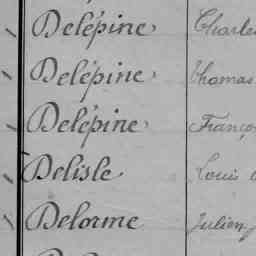 Delépine Charles
Delépine Thomas
Delépine Franço
Delisle Louis
Delorme Julien